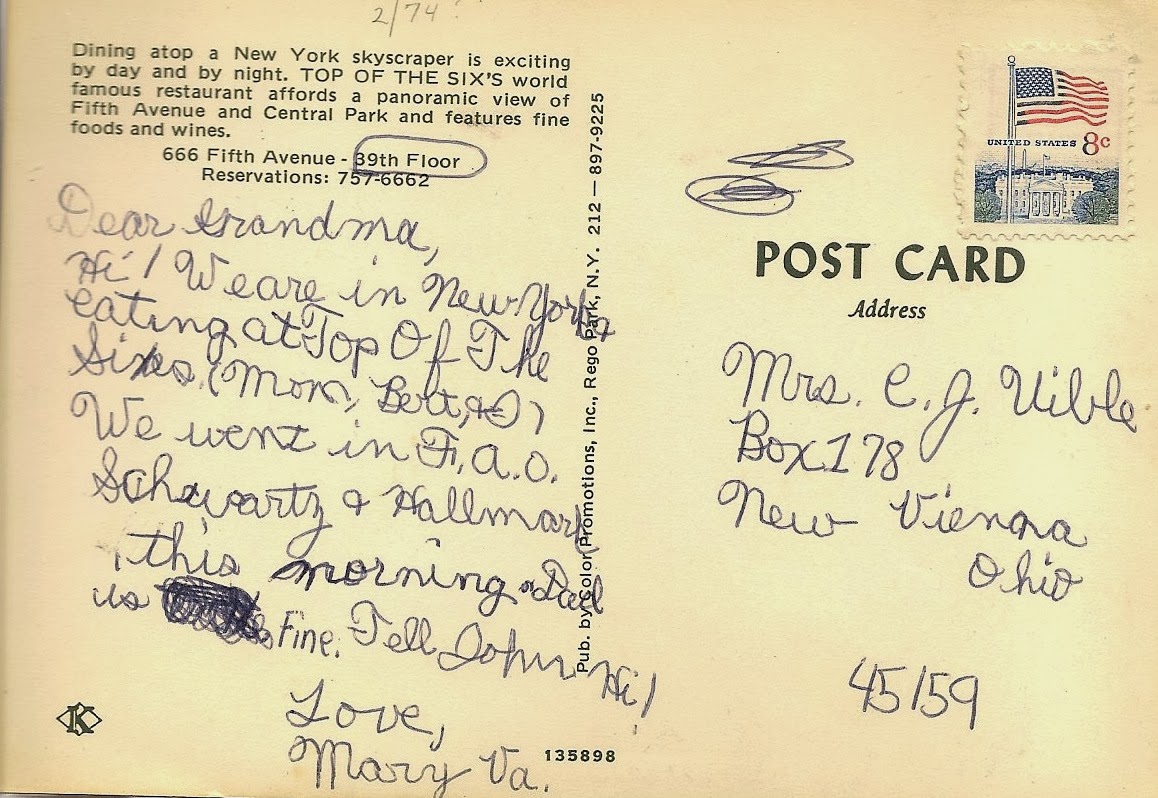 2/74?
Dining atop a New York skyscraper is exciting
by day and by night. TOP OF THE SIX'S world
famous restaurant affords a panoramic view of
Fifth Avenue and Central Park and features fine
foods and wines.
666 Fifth Avenue - 39th Floor
Reservations: 757-6662
Dear Grandma,
Hi! We are in New York
eating at Top Of The
Sixes. (Mom, Bert, & I)
We went in F.A.O.
Schwartz & Hallmark
this morning. Dad
is fine. Tell John Hi!
Love,
Mary Va.
K
135898
Pub. by Color Promotions, Inc., Rego Park, N.Y. 212 — 897-9225
UNITED STATES 8c
POST CARD
Address
Mrs. C. J. Uible
Box 178
New Vienna
Ohio
45159